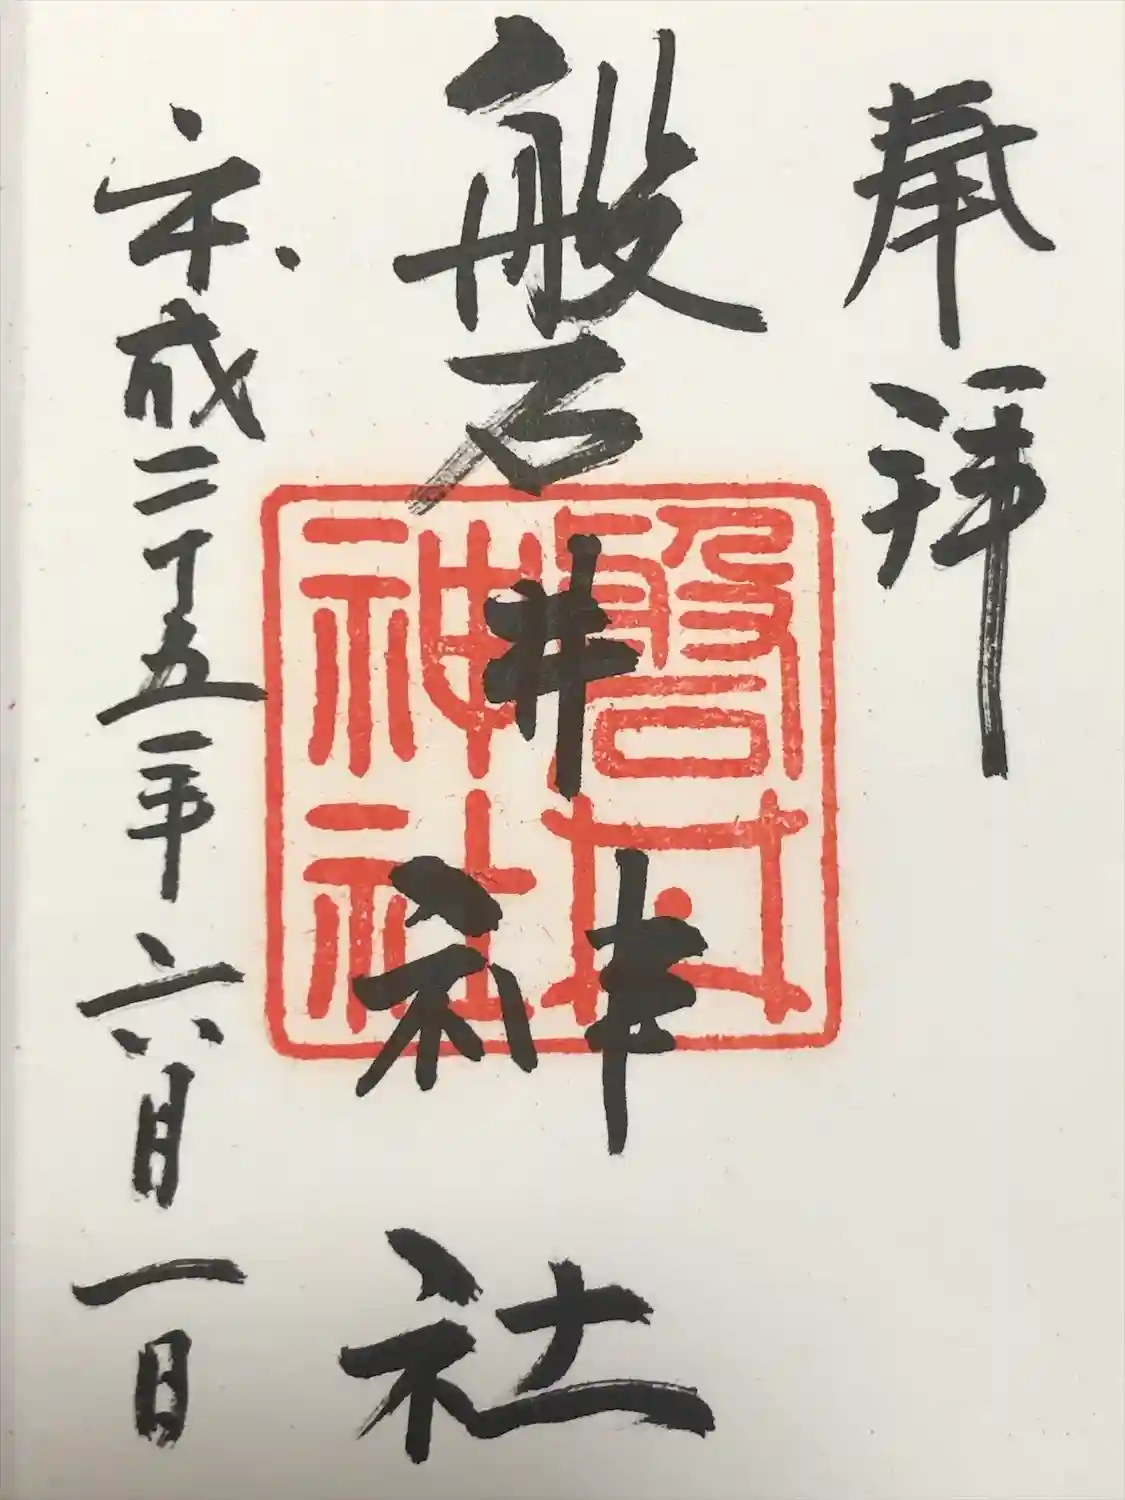 奉拝
磐井神社
平成二十五年六月一日
磐井
神社